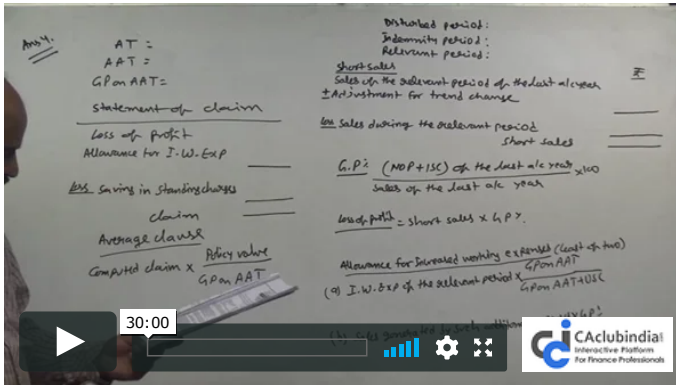 Ans 4.
AT =
AAT =
GP on AAT =
Statement of claim
Loss of profit
Allowance for I.W. Exp
Less saving in standing charges
claim
Average clause
Computed claim × Policy value / GP on AAT
Disturbed period:
Indemnity period:
Relevant period:
Short sales
₹
Sales of the relevant period of the last a/c year
± Adjustment for trend change
Less Sales during the relevant period
Short sales
G.P% (NOP + ISC) of the last a/c year / Sales of the last a/c year × 100
Loss of profit = Short sales × GP%
Allowance for Increased working expenses (least of two)
(a) I.W. Exp of the relevant period × GP on AAT / GP on AAT + USC
(b) Sales generated by such
30:00
CAclubindia
Interactive Platform
For Finance Professionals